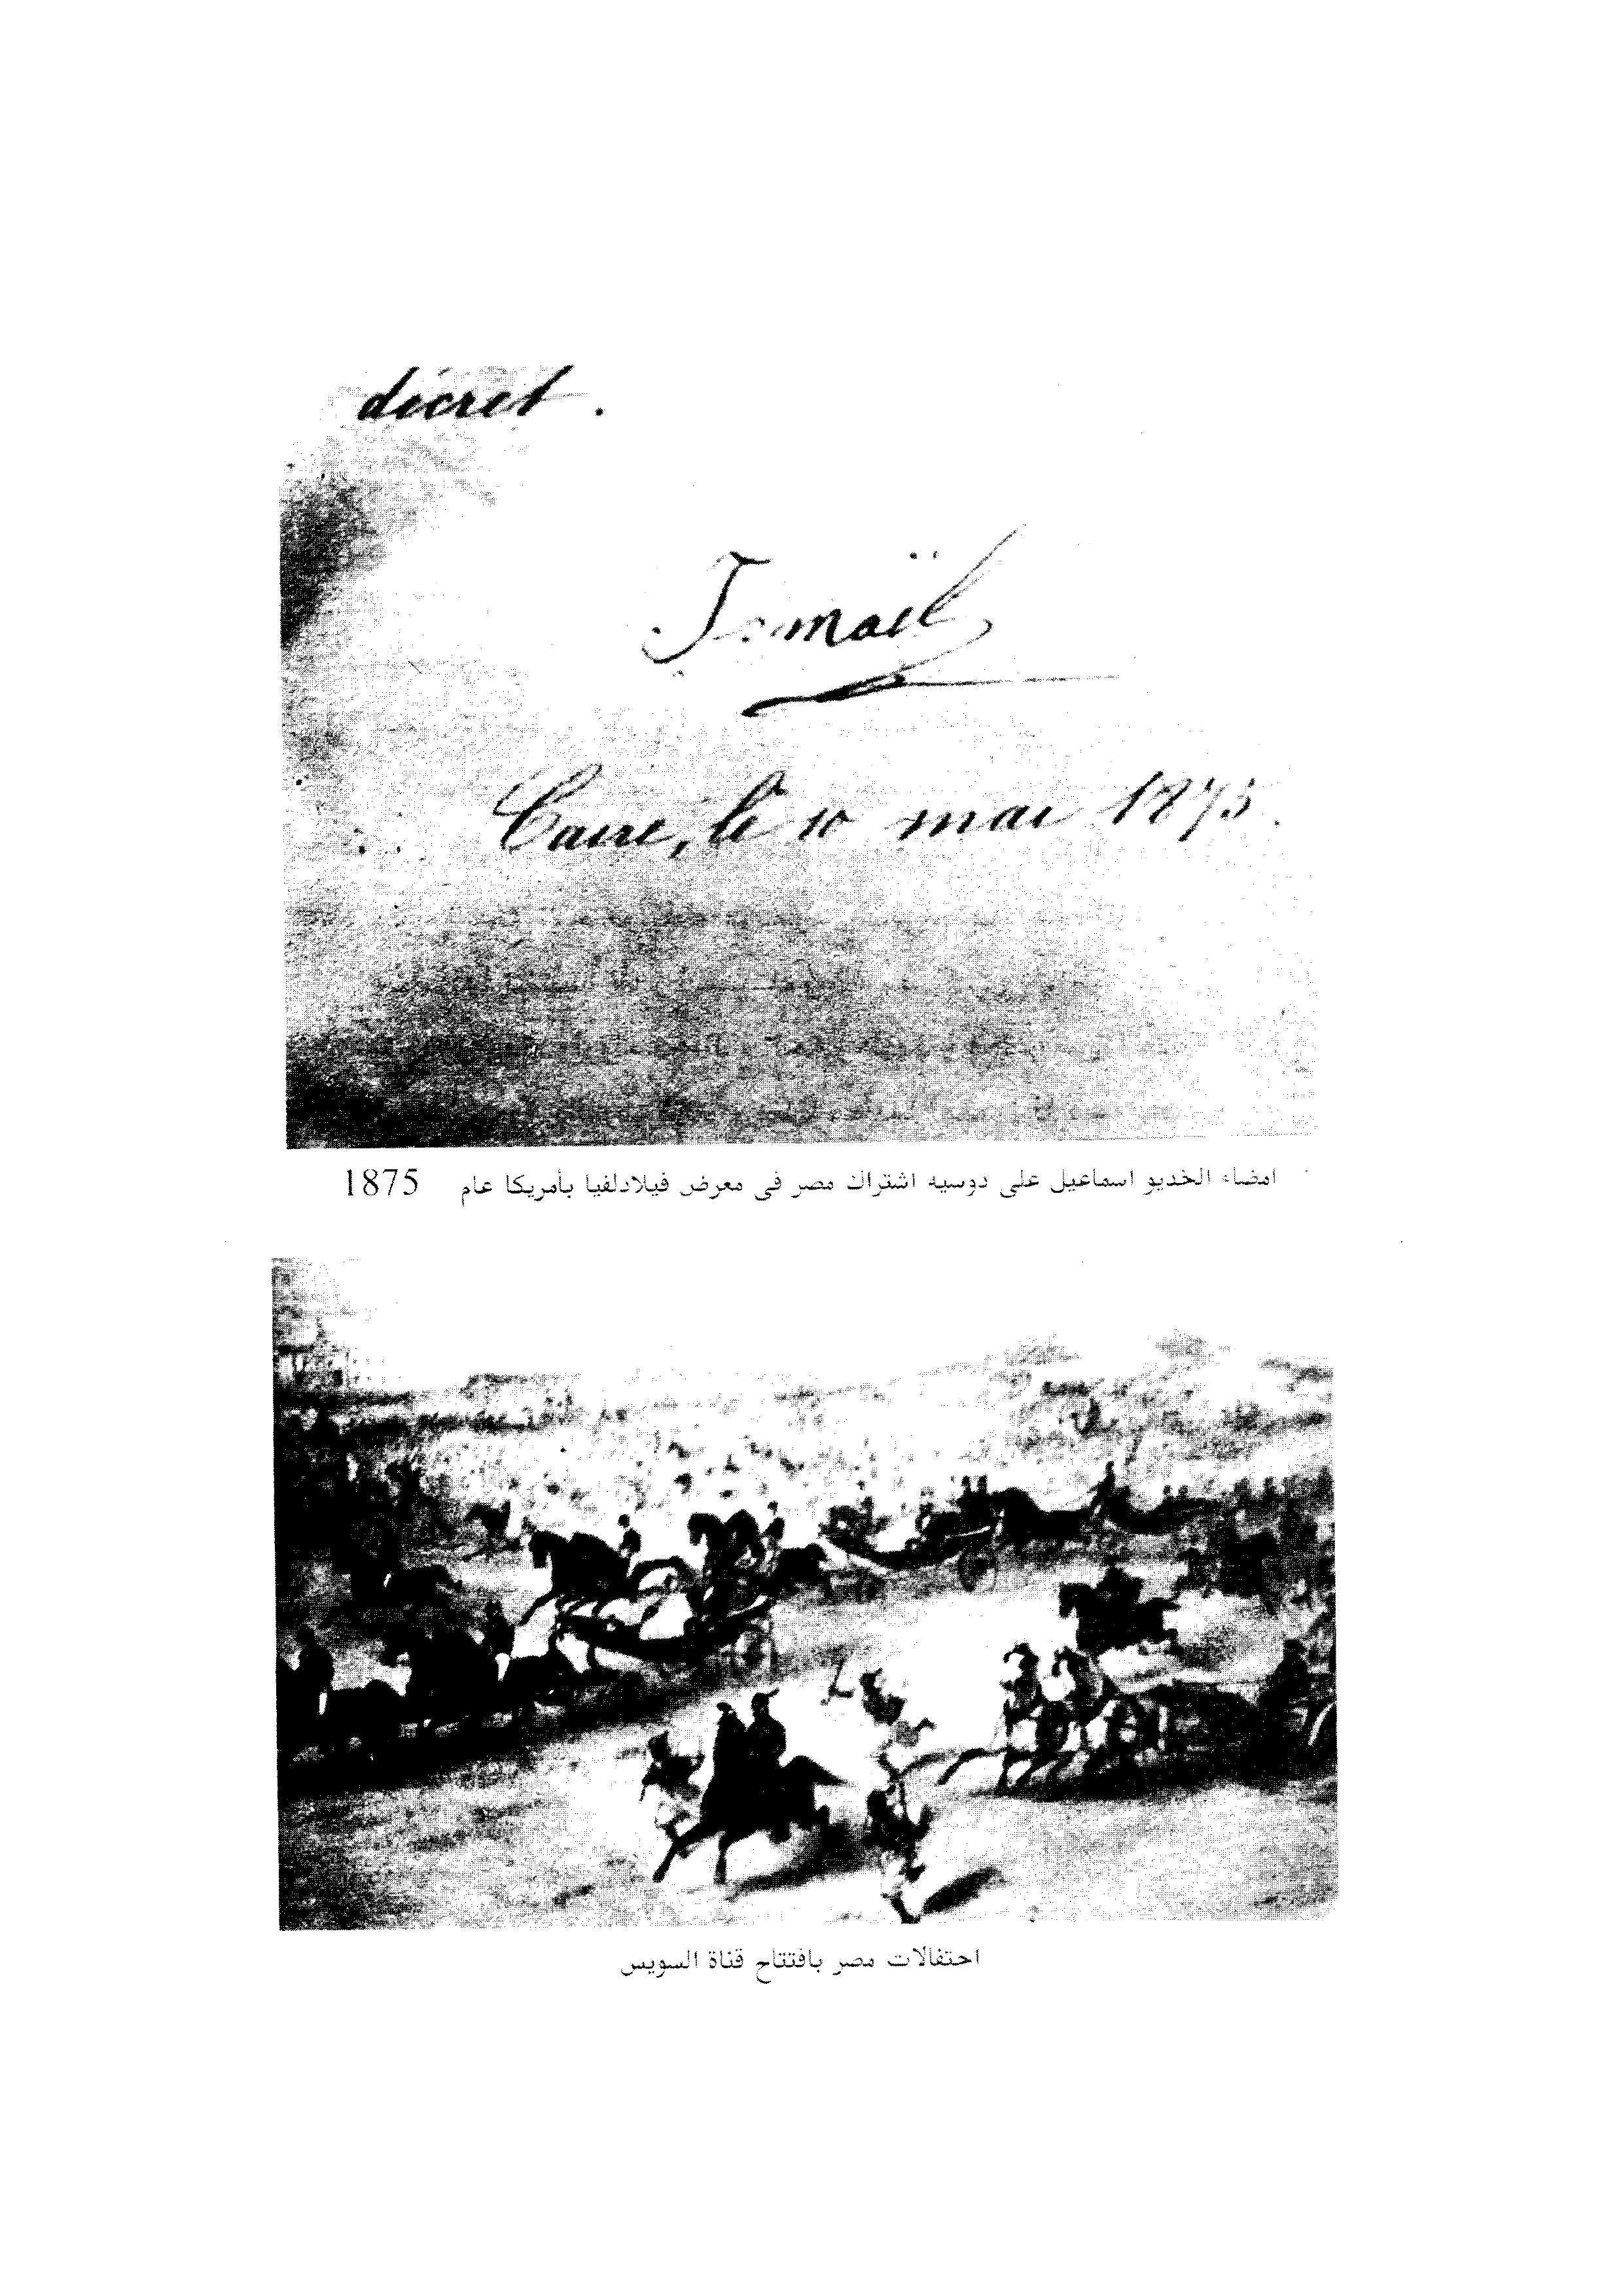 décret.
Ismaïl
Caire, le 10 mai 1875.
امضاء الخديو اسماعيل على دوسيه اشتراك مصر فى معرض فيلادلفيا بأمريكا عام 1875
احتفالات مصر بافتتاح قناة السويس